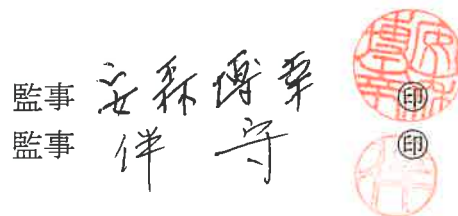 監事 安森博幸 ㊞
監事 伴 守 ㊞